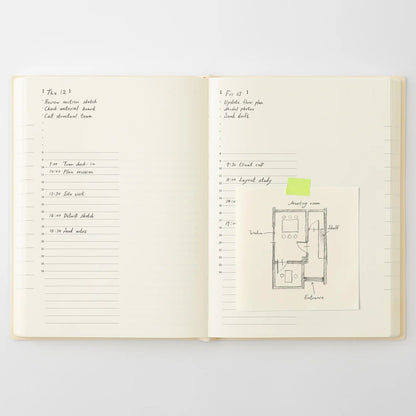 Thu 12
Review section sketch
Check material board
Call structural team
9:00 Team check-in
10:00 Plan revision
13:30 Site visit
16:00 Detail sketch
18:30 Send notes
Update floor plan
Model photos
Send drafts
9:30 Client call
11:00 Layout study
Meeting room
Shelf
Entrance